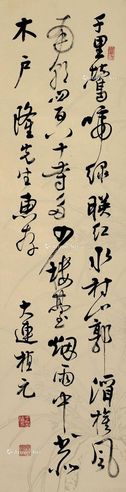 千里鶯啼緑映紅水村山郭酒旗風
南朝四百八十寺多少楼台烟雨中書為
木戸隆先生恵存
大連